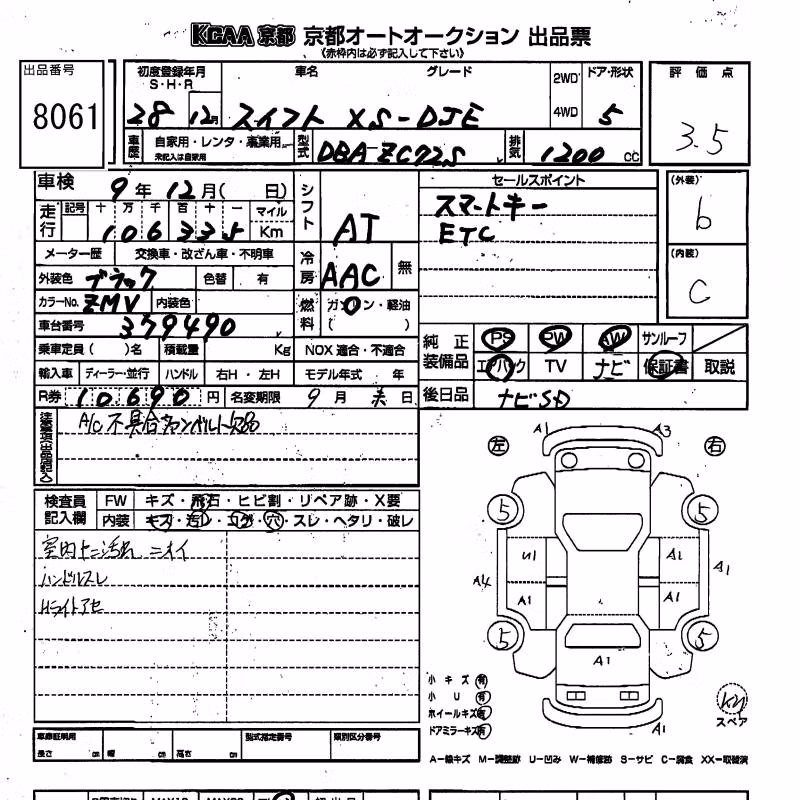 KCAA 京都 京都オートオークション 出品票
(赤枠内は必ず記入して下さい)
出品番号
8061
初度登録年月 車名 グレード 2WD ドア・形状 評価点
S・H・R
28 12月 スイフト XS-DJE 4WD 5 3.5
車歴 自家用・レンタ・事業用 型式 DBA-ZC72S 排気 1200 cc
未記入は自家用
車検 9年12月( 日) シフト AT セールスポイント (外装)
走行 記号 十万千百十一 マイル スマートキー b
106335 Km ETC
メーター歴 交換車・改ざん車・不明車 冷房 AAC 無 (内装)
外装色 ブラック 色替 有 C
カラーNo. ZMV 内装色 燃料 ガソリン・軽油
車台番号 379490 ( )
乗車定員( )名 積載量 Kg NOX 適合・不適合 純正装備品 PS PW AW サンルーフ
輸入車 ディーラー・並行 ハンドル 右H・左H モデル年式 年 エアバック TV ナビ 保証書 取説
R券 10690円 名変期限 9月 末日 後日品 ナビSD
注意事項(出品店記入)
A/C不具合 ファンベルト欠品
検査員記入欄 FW キズ・飛石・ヒビ割・リペア跡・X要
内装 キズ・汚レ・コゲ・穴・スレ・ヘタリ・破レ
室内 汚れ ニオイ
ハンドルスレ
Hライトアセ
左 A1 A3 右
5 5
U1 A1 A1
A4 A1 A1
5 5
A1
小キズ 有
小U 有
ホイールキズ 有
ドアミラーキズ 有
スペア
A1
A―線キズ M―調整跡 U―凹み W―補修跡 S―サビ C―腐食 XX―取替済
車庫証明用 型式指定番号 類別区分番号
長さ cm 幅 cm 高さ cm